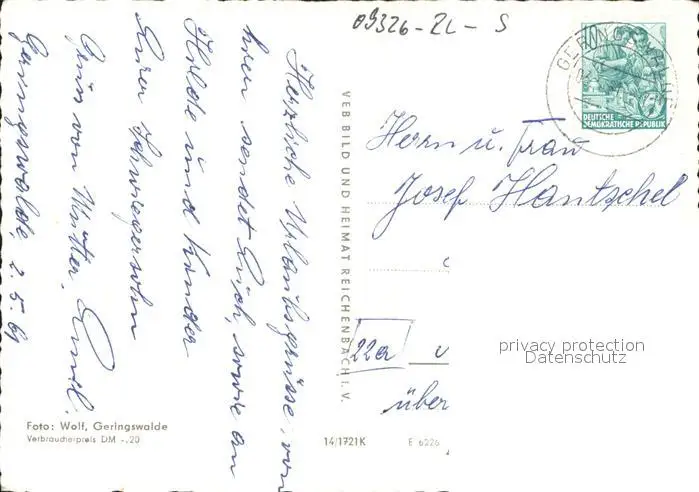 09326-ZL-S
Herzliche Urlaubsgrüsse, von
hier sendet Euch, sowie an
Hilde und Kinder
Euer Schwiegersohn
Gruss von Mutter. Emil.
Geringswalde, 2.5.61
VEB BILD UND HEIMAT REICHENBACH i. V.
GERINGSWALDE
DEUTSCHE
DEMOKRATISCHE REPUBLIK
Herrn u. Frau
Josef Hantschel
22a
über
privacy protection
Datenschutz
Foto: Wolf, Geringswalde
Verbraucherpreis DM -,20
14/1721K E 6226